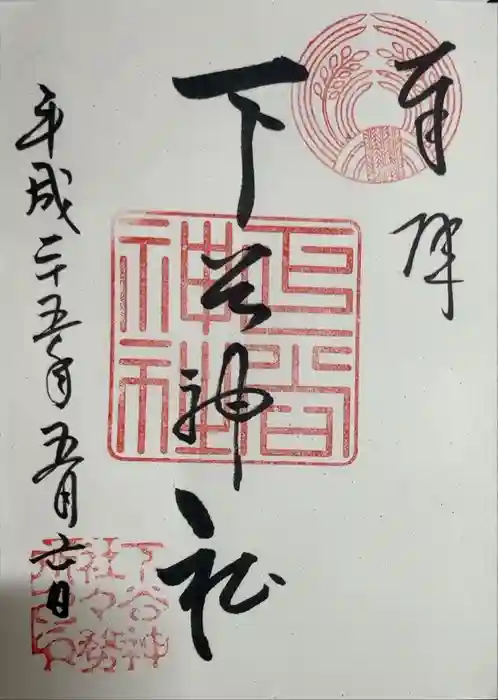 奉拝
下谷神社
平成二十五年五月日
下谷
神社
下谷神
社々務
所